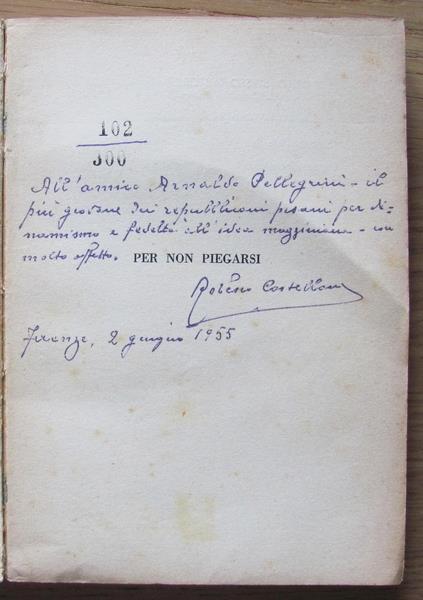 102
300
All'amico Arnaldo Pellegrini - il
più giovane dei repubblicani pisani per di-
namismo e fedeltà all'idea mazziniana - con
molto affetto.
PER NON PIEGARSI
Castellani
Firenze, 2 giugno 1955